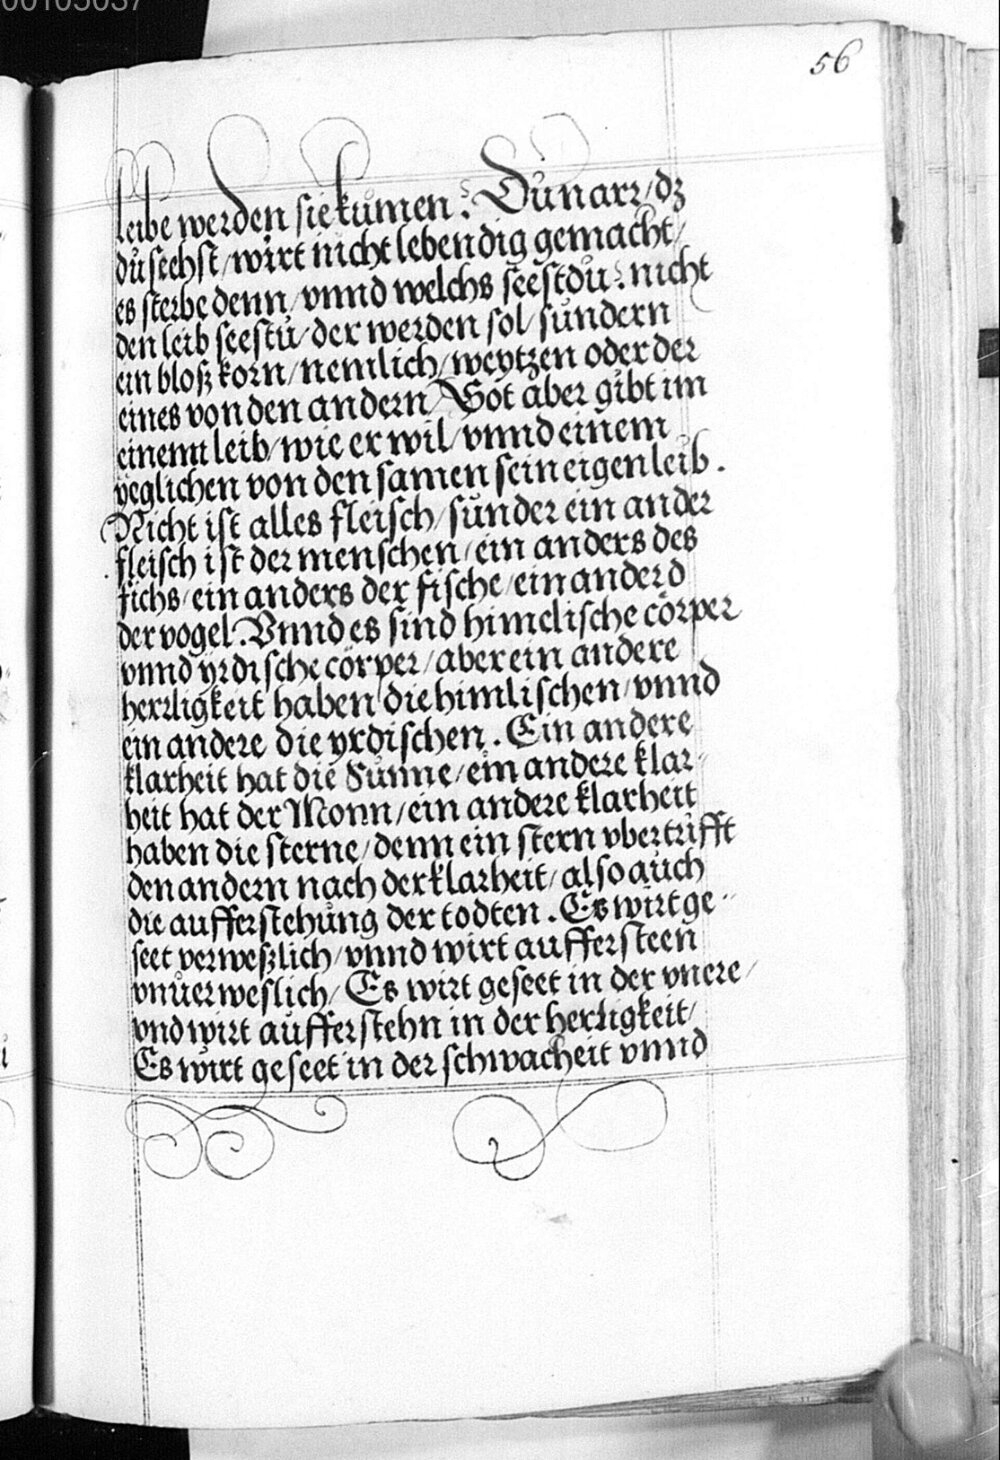 00105037
56
leibe werden sie kůmen? Dů narr/ dz
dů seehst/ wirt nicht lebendig gemacht/
es sterbe denn/ vnnd welchs seestdu? nicht
den leib seestů/ der werden sol/ sůndern
ein bloß korn/ nemlich/ weytzen oder der
eines von den andern/ Got aber gibt im
einenn leib/ wie er wil/ vnnd einem
yeglichen von den samen sein eigen leib.
Nicht ist alles fleisch/ sůnder ein ander
fleisch ist der menschen/ ein anders des
fichs/ ein anders der fische/ ein ander d
der vogel. Vnnd es sind himelische cörper
vnnd yrdische cörper/ aber ein andere
herrligkeit haben die himlischen/ vnnd
ein andere die yrdischen. Ein andere
klarheit hat die Sůnne/ ein andere klar-
heit hat der Monn/ ein andere klarheit
haben die sterne/ denn ein stern vbertrifft
den andern nach der klarheit/ also aůch
die aufferstehůng der todten. Es wirt ge-
seet verweßlich/ vnnd wirt auffersteen
vnůerweslich/ Es wirt geseet in der vnere/
vnd wirt aůfferstehn in der herligkeit/
Es wirt geseet in der schwacheit vnnd